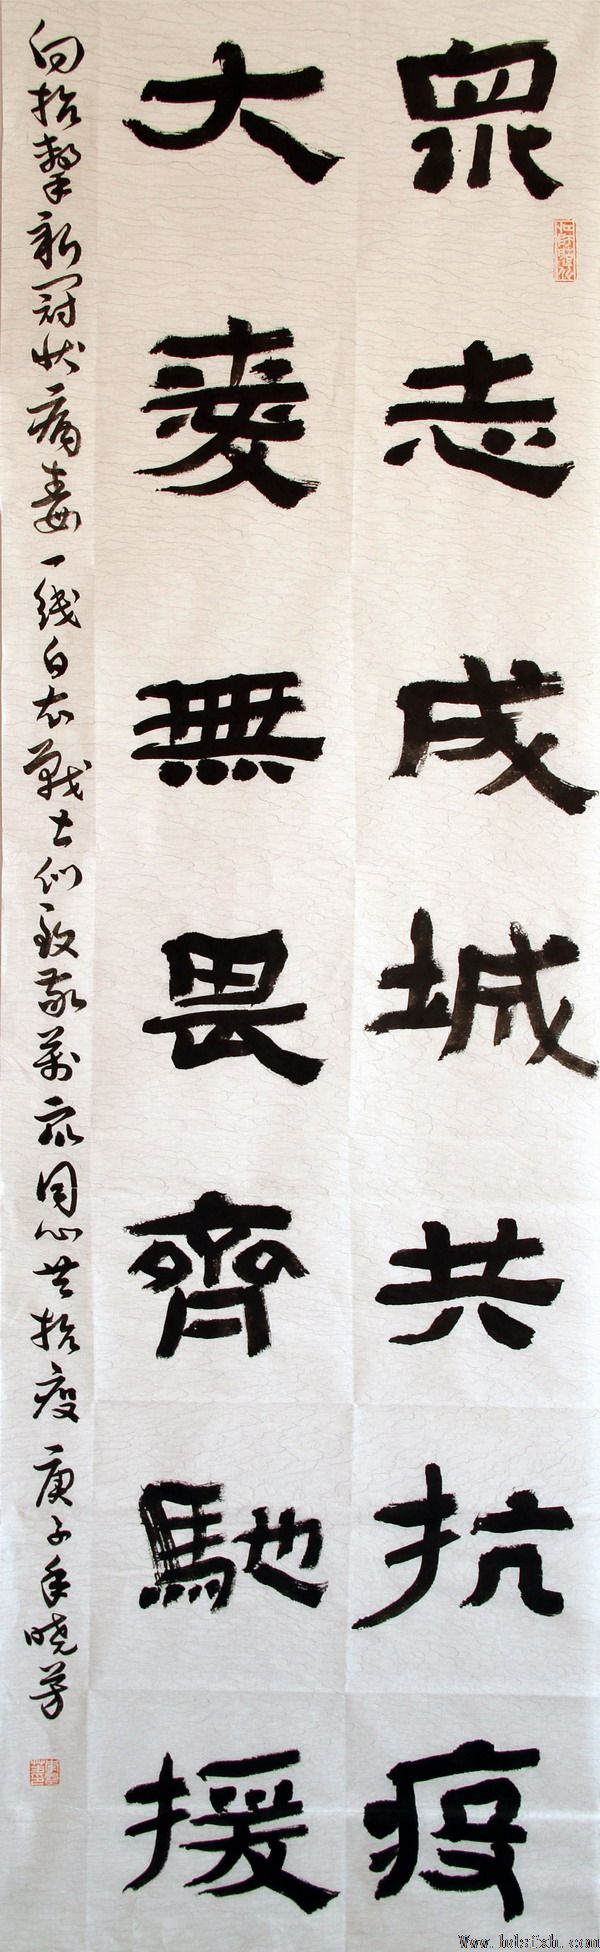 眾志成城共抗疫
大愛無畏齊馳援
向抗擊新冠状病毒一线白衣戰士们致敬萬眾同心共抗疫庚子年晓芳